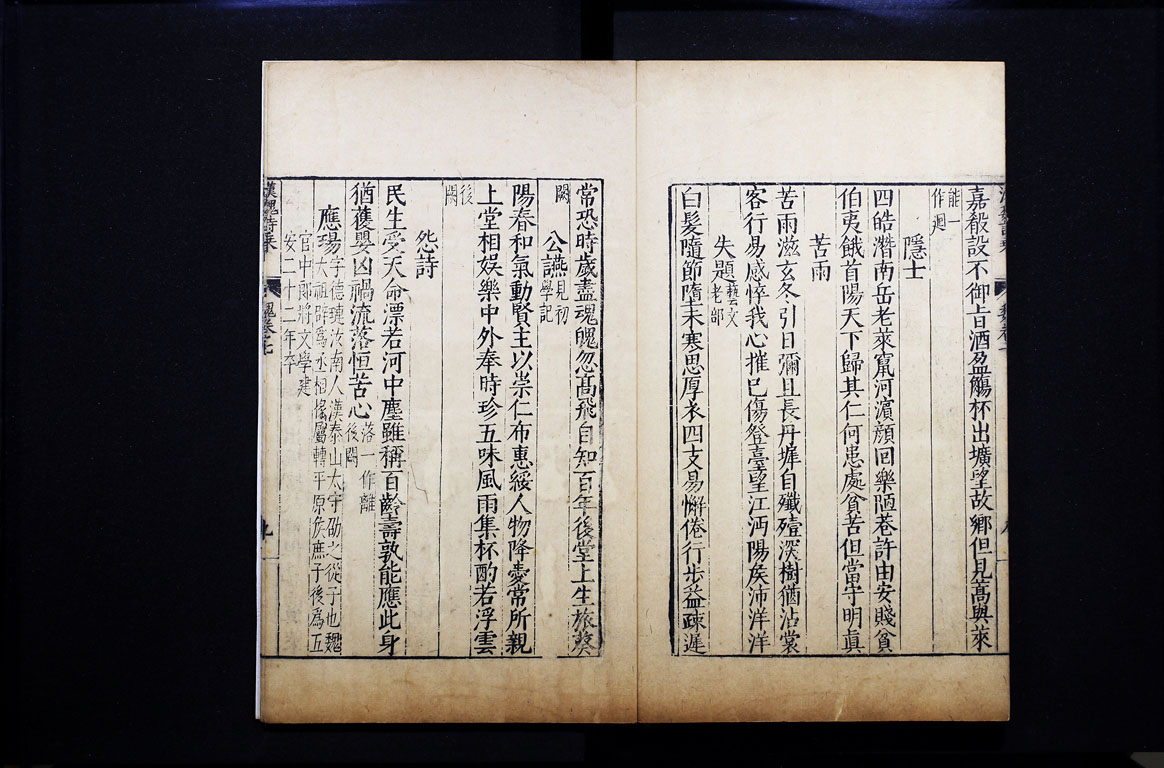 嘉殽設不御旨酒盈觴杯出壙望故鄉但見蒿與萊
能一
作廻
隱士
四皓潛南岳老萊竄河濵顔回樂陋巷許由安賤貧
伯夷餓首陽天下歸其仁何患處貧苦但當守明真
苦雨
苦雨滋玄冬引日彌且長丹墀自殲殪深樹猶沾裳
客行易感悴我心摧已傷登臺望江沔陽侯沛洋洋
失題
藝文
老部
白髮隨節墮未寒思厚衣四支易懈倦行步益疎遲
常恐時歲盡魂魄忽高飛自知百年後堂上生旅葵
闕
公讌
見初
學記
陽春和氣動賢主以崇仁布惠綏人物降愛常所親
上堂相娛樂中外奉時珍五味風雨集杯酌若浮雲
後
闕
怨詩
民生受天命漂若河中塵雖稱百齡壽孰能應此身
猶獲嬰凶禍流落恒苦心
落一作離
後闕
應瑒
字德璉汝南人漢泰山太守劭之從子也魏
太祖辟爲丞相掾屬轉平原侯庶子後爲五
官中郎將文學建
安二十二年卒
漢魏詩集
魏卷之七
九